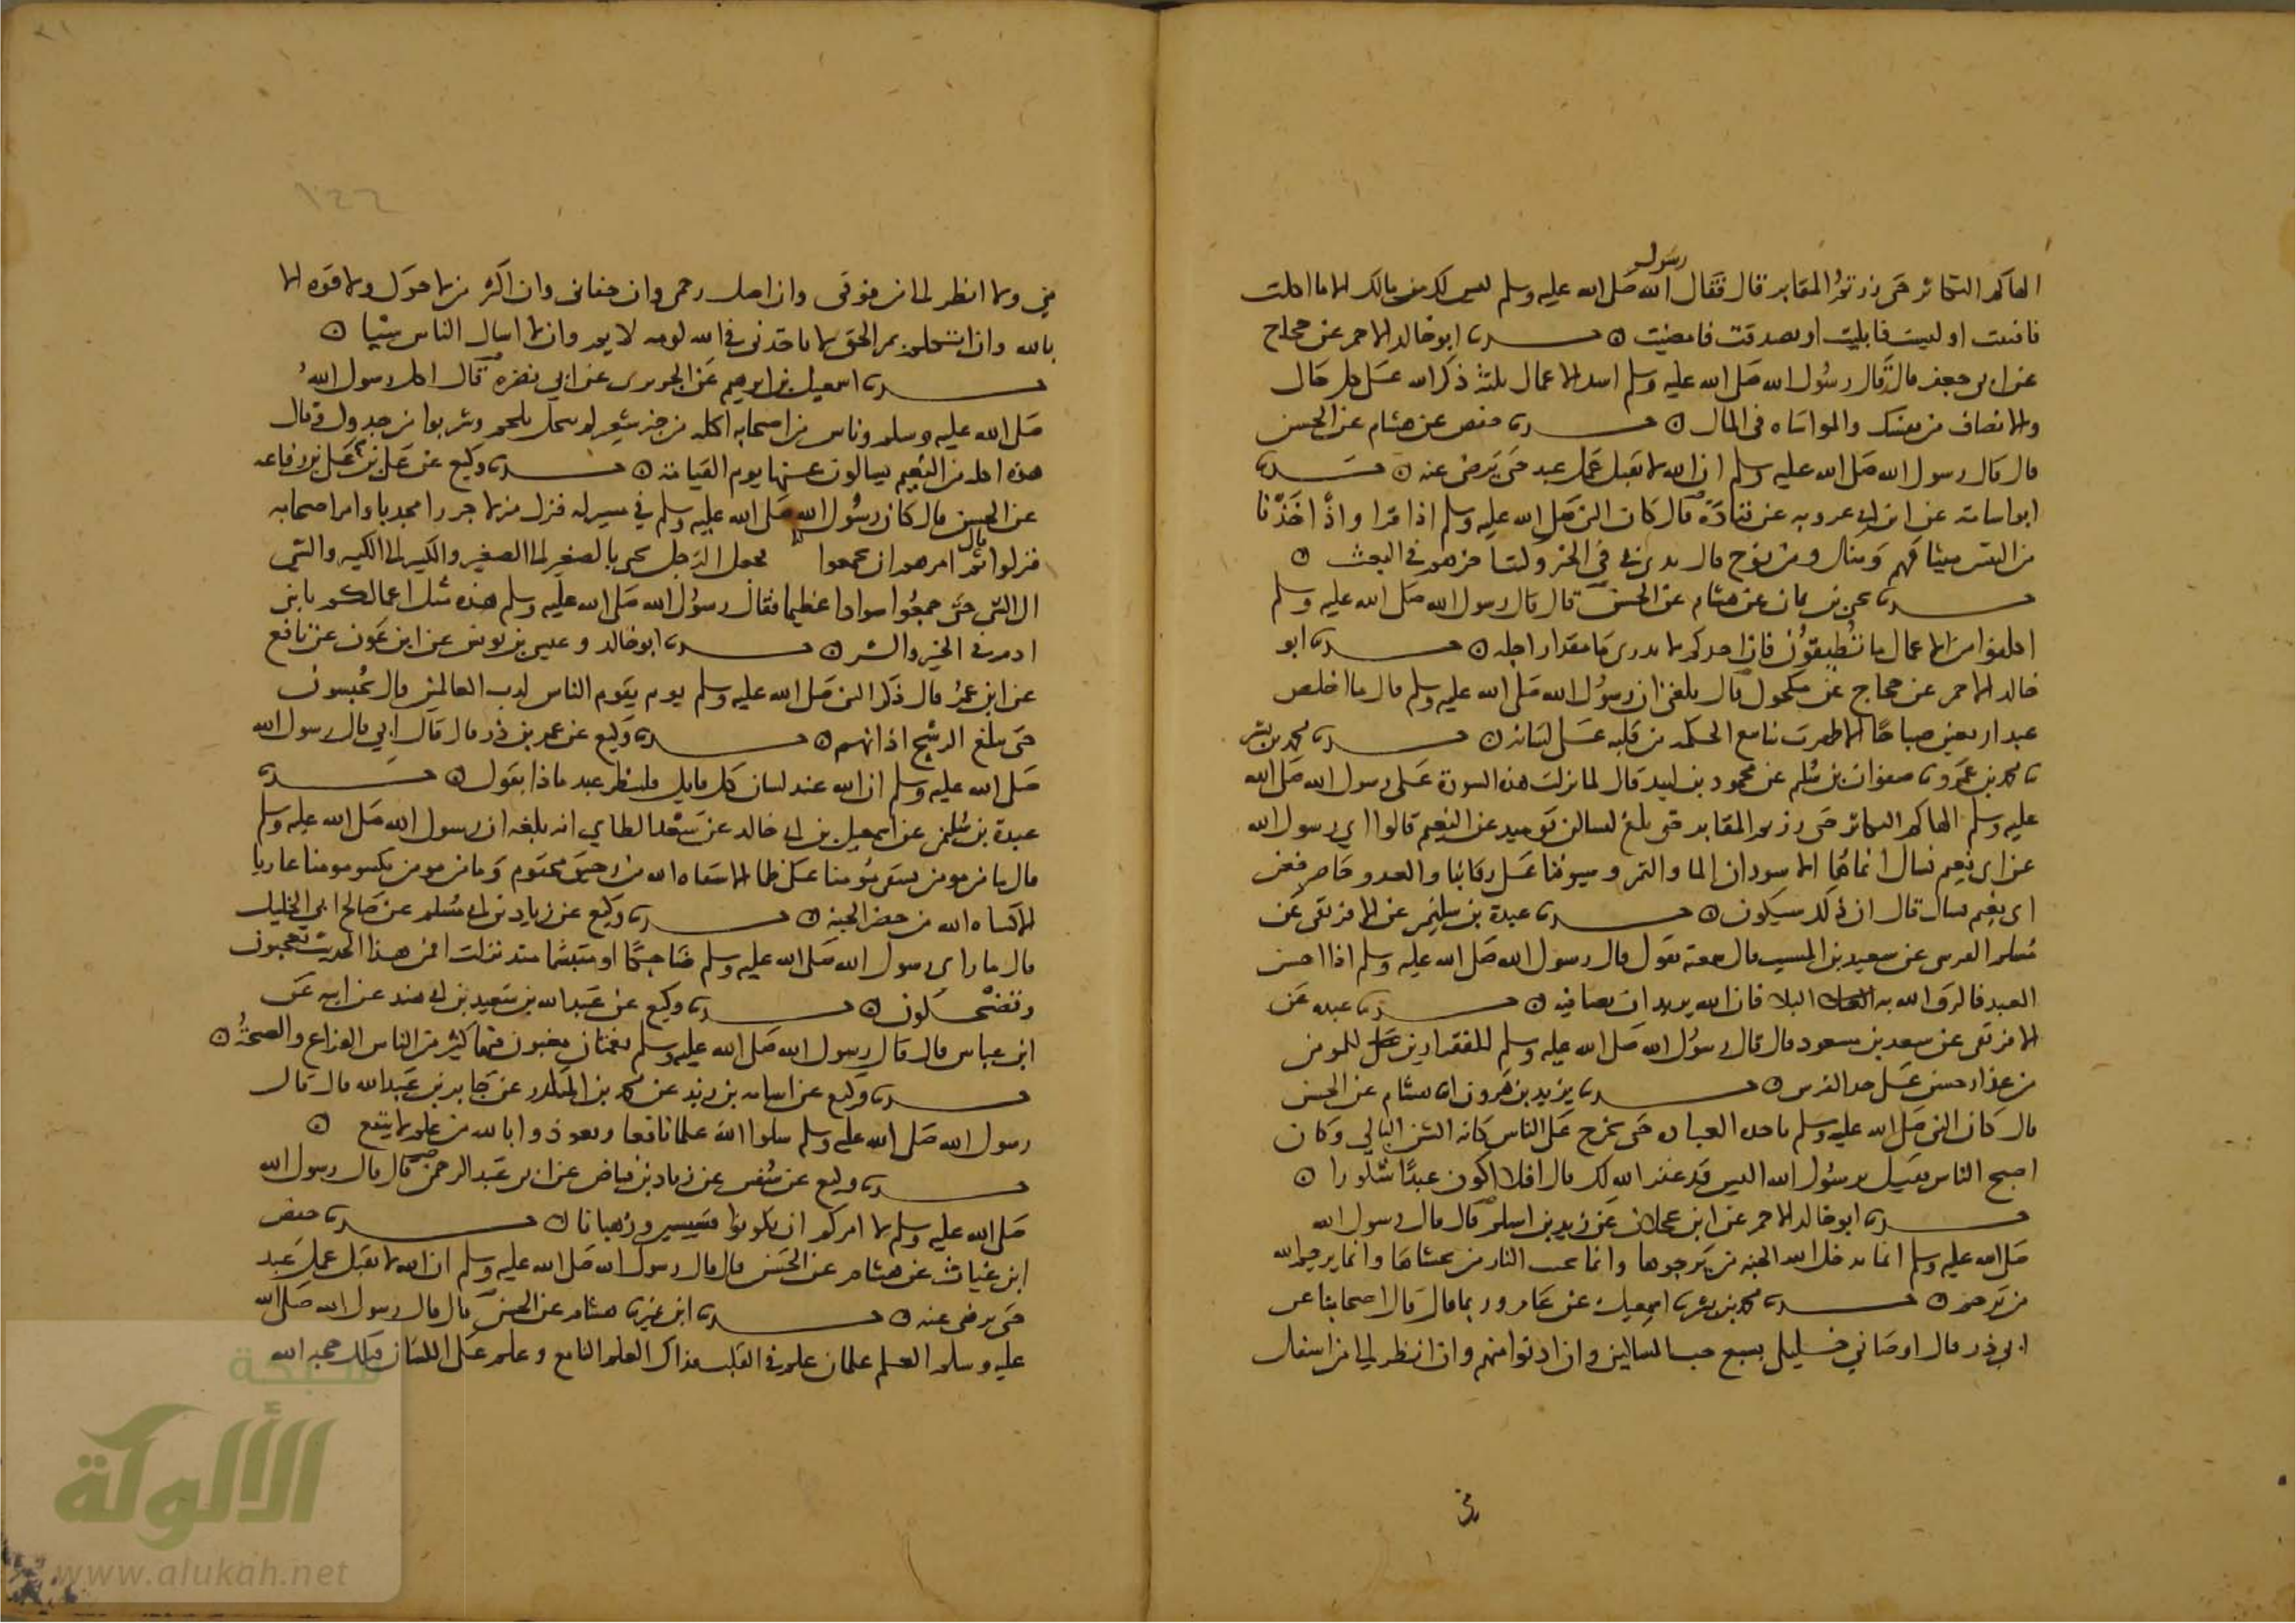 الهاكم التكاثر حتى زرتم المقابر قال فقال رسول الله صلى الله عليه وسلم ليس لك من مالك الا ما اكلت
فافنيت او لبست فابليت او تصدقت فامضيت ○ حدثنا ابو خالد الاحمر عن حجاج
عن ابي جعفر قال قال رسول الله صلى الله عليه وسلم اشد الاعمال ثلثة ذكر الله على كل حال
والانصاف من نفسك والمواساه في المال ○ حدثنا حفص عن هشام عن الحسن
قال قال رسول الله صلى الله عليه وسلم ان الله لا يقبل عمل عبد حتى يرضى عنه ○ حدثنا
ابو اسامة عن ابن ابي عروبه عن قتادة قال كان النبي صلى الله عليه وسلم اذا قرا واذ اخذنا
من النبيين ميثاقهم ومنك ومن نوح قال بدئ بي في الخير وكنت اخرهم في البعث ○
حدثنا يحيى بن يمان عن هشام عن الحسن قال قال رسول الله صلى الله عليه وسلم
اكلفوا من الاعمال ما تطيقون فان احدكم لا يدري ما مقدار اجله ○ حدثنا ابو
خالد الاحمر عن حجاج عن مكحول قال بلغني ان رسول الله صلى الله عليه وسلم قال ما اخلص
عبد اربعين صباحا الا ظهرت ينابيع الحكمه من قلبه على لسانه ○ حدثنا محمد بن بشر
ثنا محمد بن عمرو ثنا صفوان بن سليم عن محمود بن لبيد قال لما نزلت هذه السورة على رسول الله صلى الله
عليه وسلم الهاكم التكاثر حتى زرتم المقابر حتى بلغ لتسالن يوميذ عن النعيم قالوا اي رسول الله
عن اي نعيم نسال انما هما الاسودان الما والتمر وسيوفنا على رقابنا والعدو حاضر فعن
اي نعيم نسال قال ان ذلك سيكون ○ حدثنا عبدة بن سليمن عن الافريقي عن
مسلم القرشي عن سعيد بن المسيب قال سمعته يقول قال رسول الله صلى الله عليه وسلم اذا احسن
العبد فالزق الله به البلا فان الله يريد ان يصافيه ○ حدثنا عبده عن
الافريقي عن سعد بن مسعود قال قال رسول الله صلى الله عليه وسلم للفقر ازين للمومن
من عذار حسن على خد الفرس ○ حدثنا يزيد بن هرون انا هشام عن الحسن
قال كان النبي صلى الله عليه وسلم ياخذ العباده حتى يخرج على الناس كانه الشن البالي وكان
اصبح الناس فقيل يرسول الله اليس قد غفر الله لك قال افلا اكون عبدا شكورا ○
حدثنا ابو خالد الاحمر عن ابن عجلان عن زيد بن اسلم قال قال رسول الله
صلى الله عليه وسلم انما يدخل الله الجنه من يرجوها وانما يجنب النار من يخشاها وانما يرحم الله
من يرحم ○ حدثنا محمد بن بشر ثنا اسمعيل عن عامر وربما قال قال اصحابنا عن
ابي ذر قال اوصاني خليلي بسبع حب المساكين وان ادنوا منهم وان انظر الى من اسفل
مني
مني ولا انظر الى من فوقي وان اصل رحمي وان جفاني وان اكثر من لا حول ولا قوه الا
بالله وان اتكلم بمر الحق لا تاخذني في الله لومه لايم وان لا اسال الناس شيا ○
حدثنا اسمعيل بن ابراهيم عن الجريري عن ابي نضره قال اكل رسول الله
صلى الله عليه وسلم وناس من اصحابه اكله من خبز شعير لم ينخل بلحم وشربوا من جدول وقال
هذه اكله من النعيم تسالون عنها يوم القيامة ○ حدثنا وكيع عن علي بن علي بن رفاعه
عن الحسن قال كان رسول الله صلى الله عليه وسلم في مسير له فنزل منزلا جرزا مجدبا وامر اصحابه
فنزلوا قال ثم امرهم ان يجمعوا فجعل الرجل يجي بالصغير الى الصغير والكبير الى الكبير والشي
الى الشي حتى جمعوا سوادا عظيما فقال رسول الله صلى الله عليه وسلم هذه مثل اعمالكم يا بني
ادم في الخير والشر ○ حدثنا ابو خالد وعيسى بن يونس عن ابن عون عن نافع
عن ابن عمر قال ذكر النبي صلى الله عليه وسلم يوم يقوم الناس لرب العالمين قال يحبسون
حتى يبلغ الرشح اذانهم ○ حدثنا وكيع عن عمر بن ذر قال قال ابي قال رسول الله
صلى الله عليه وسلم ان الله عند لسان كل قايل فلينظر عبد ماذا يقول ○ حدثنا
عبدة بن سليمن عن اسمعيل بن ابي خالد عن سعد الطاي انه بلغه ان رسول الله صلى الله عليه وسلم
قال ما من مومن يسقي مومنا على ظما الا سقاه الله من رحيق مختوم وما من مومن يكسو مومنا عاريا
الا كساه الله من خضر الجنه ○ حدثنا وكيع عن زياد بن ابي مسلم عن صالح ابي الخليل
قال ما راي رسول الله صلى الله عليه وسلم ضاحكا او متبسما منذ نزلت افمن هذا الحديث تعجبون
وتضحكون ○ حدثنا وكيع عن عبد الله بن سعيد بن ابي هند عن ابيه عن
ابن عباس قال قال رسول الله صلى الله عليه وسلم نعمتان مغبون فيهما كثير من الناس الفراغ والصحة ○
حدثنا وكيع عن اسامه بن زيد عن محمد بن المنكدر عن جابر بن عبد الله قال قال
رسول الله صلى الله عليه وسلم سلوا الله علما نافعا وتعوذوا بالله من علم لا ينفع ○
حدثنا وكيع عن سفين عن زياد بن فياض عن ابي عبد الرحمن قال قال رسول الله
صلى الله عليه وسلم لا امركم ان تكونوا قسيسين ورهبانا ○ حدثنا حفص
ابن غياث عن هشام عن الحسن قال قال رسول الله صلى الله عليه وسلم ان الله لا يقبل عمل عبد
حتى يرضى عنه ○ حدثنا ابن نمير ثنا هشام عن الحسن قال قال رسول الله صلى الله
عليه وسلم العلم علمان علم في القلب فذاك العلم النافع وعلم على اللسان فتلك حجه الله
شبكة
الألوكة
www.alukah.net